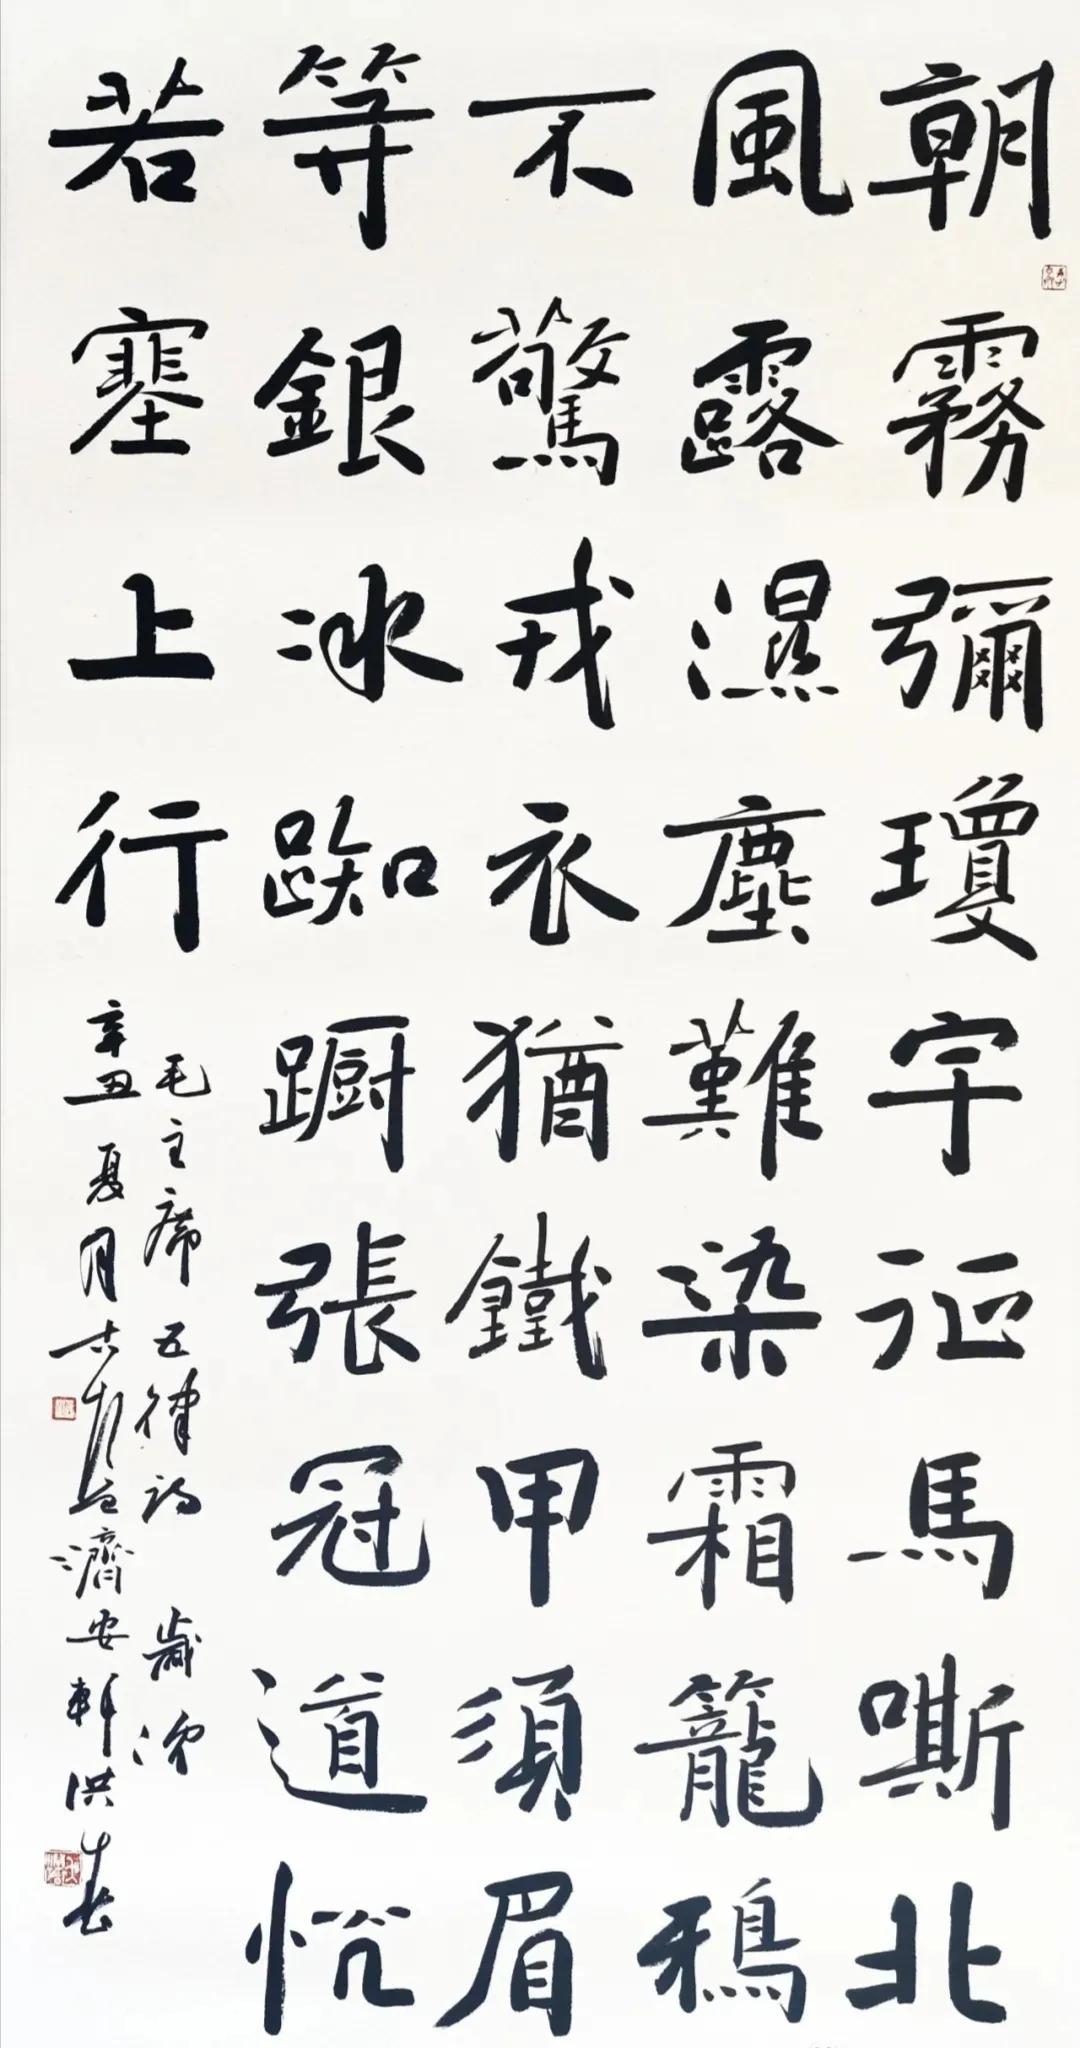 朝霧彌瓊宇征馬嘶北
風露濕塵難染霜籠鴉
不驚戎衣猶鐵甲須眉
等銀冰踟躕張冠道恍
若塞上行
毛主席五律詩 歲次
辛丑夏月 濟安軒洪春